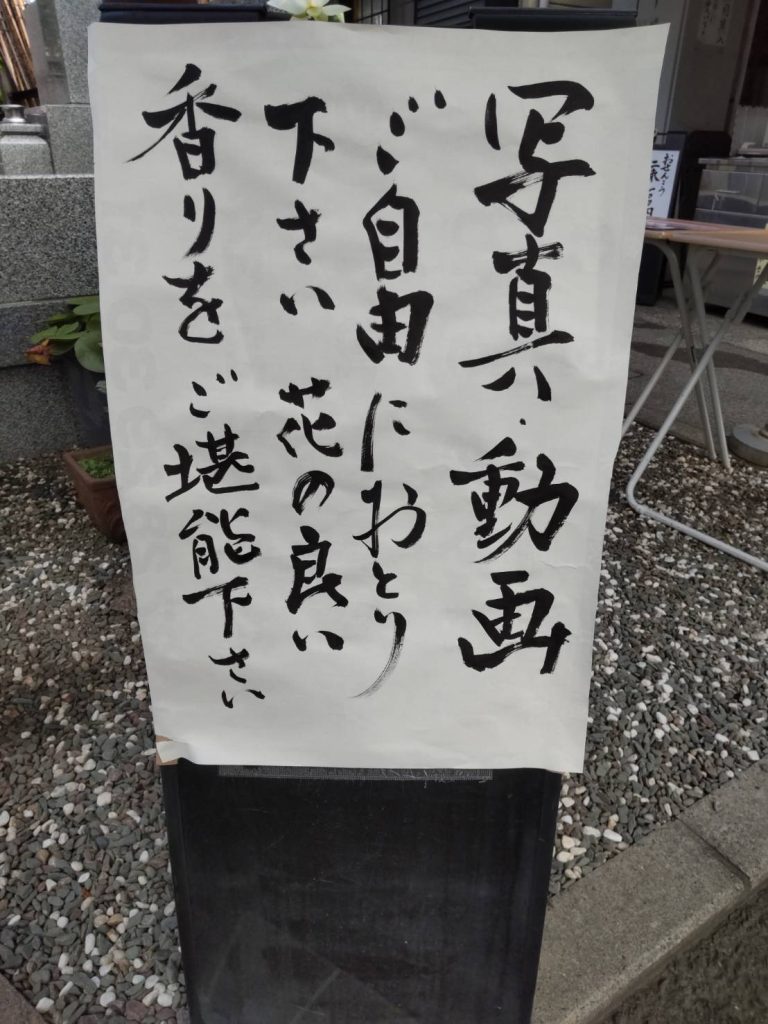 写真・動画
ご自由におとり
下さい 花の良い
香りを ご堪能下さい
おせんこう